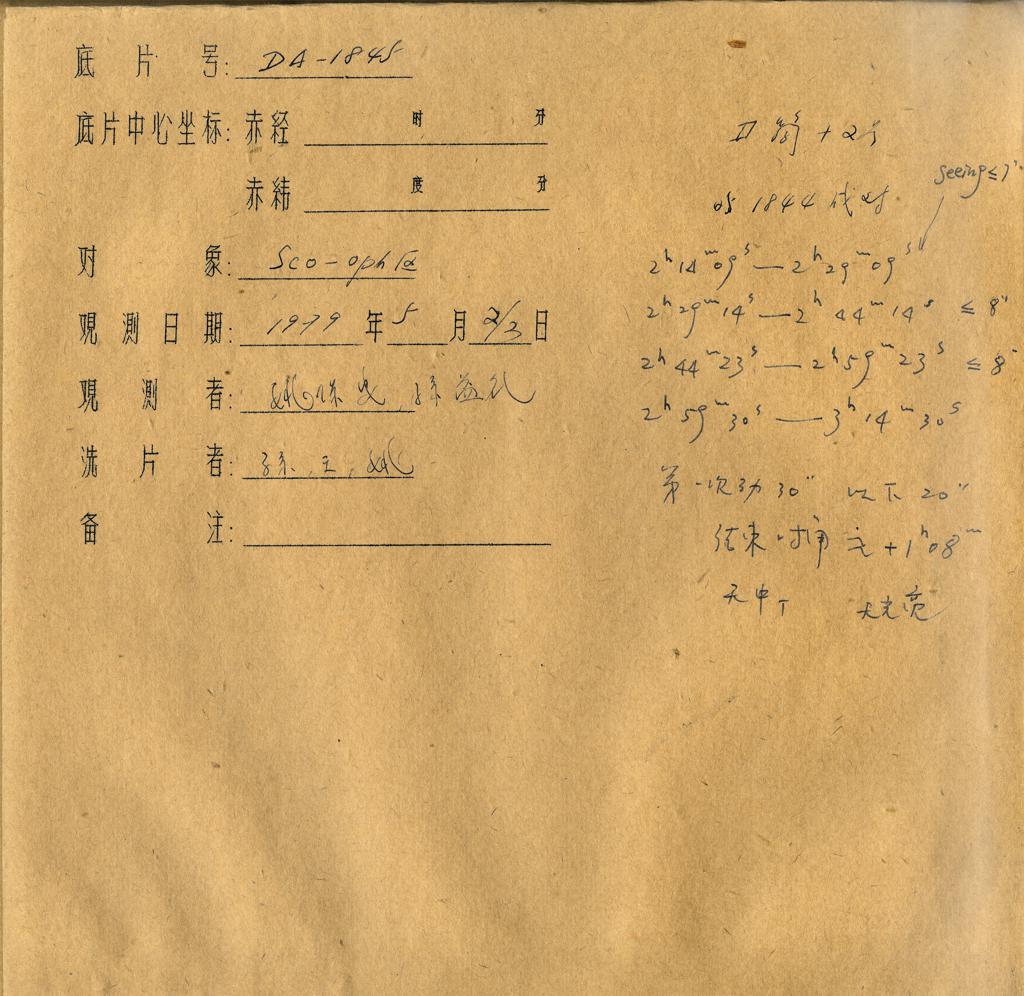 底片号: DA-1845
底片中心坐标: 赤经 时 分
赤纬 度 分
对象: Sco-oph区
观测日期: 1979年5月2/3日
观测者: 姚保安, 孙益礼
洗片者: 孙, 王, 姚
备注:
II 号
1844 成对
seeing≤7"
2ʰ14ᵐ09ˢ—2ʰ29ᵐ09ˢ
2ʰ29ᵐ14ˢ—2ʰ44ᵐ14ˢ ≤8"
2ʰ44ᵐ23ˢ—2ʰ59ᵐ23ˢ ≤8"
2ʰ59ᵐ30ˢ—3ʰ14ᵐ30ˢ
第一次动30" 以下20"
结束时角 +1ʰ08ᵐ
天中下 天光亮